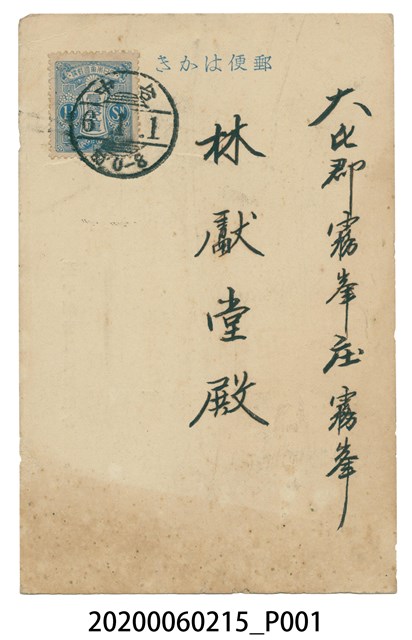 郵便はかき
大屯郡霧峯庄霧峯
林獻堂殿
台中
6.1.1
20200060215_P001